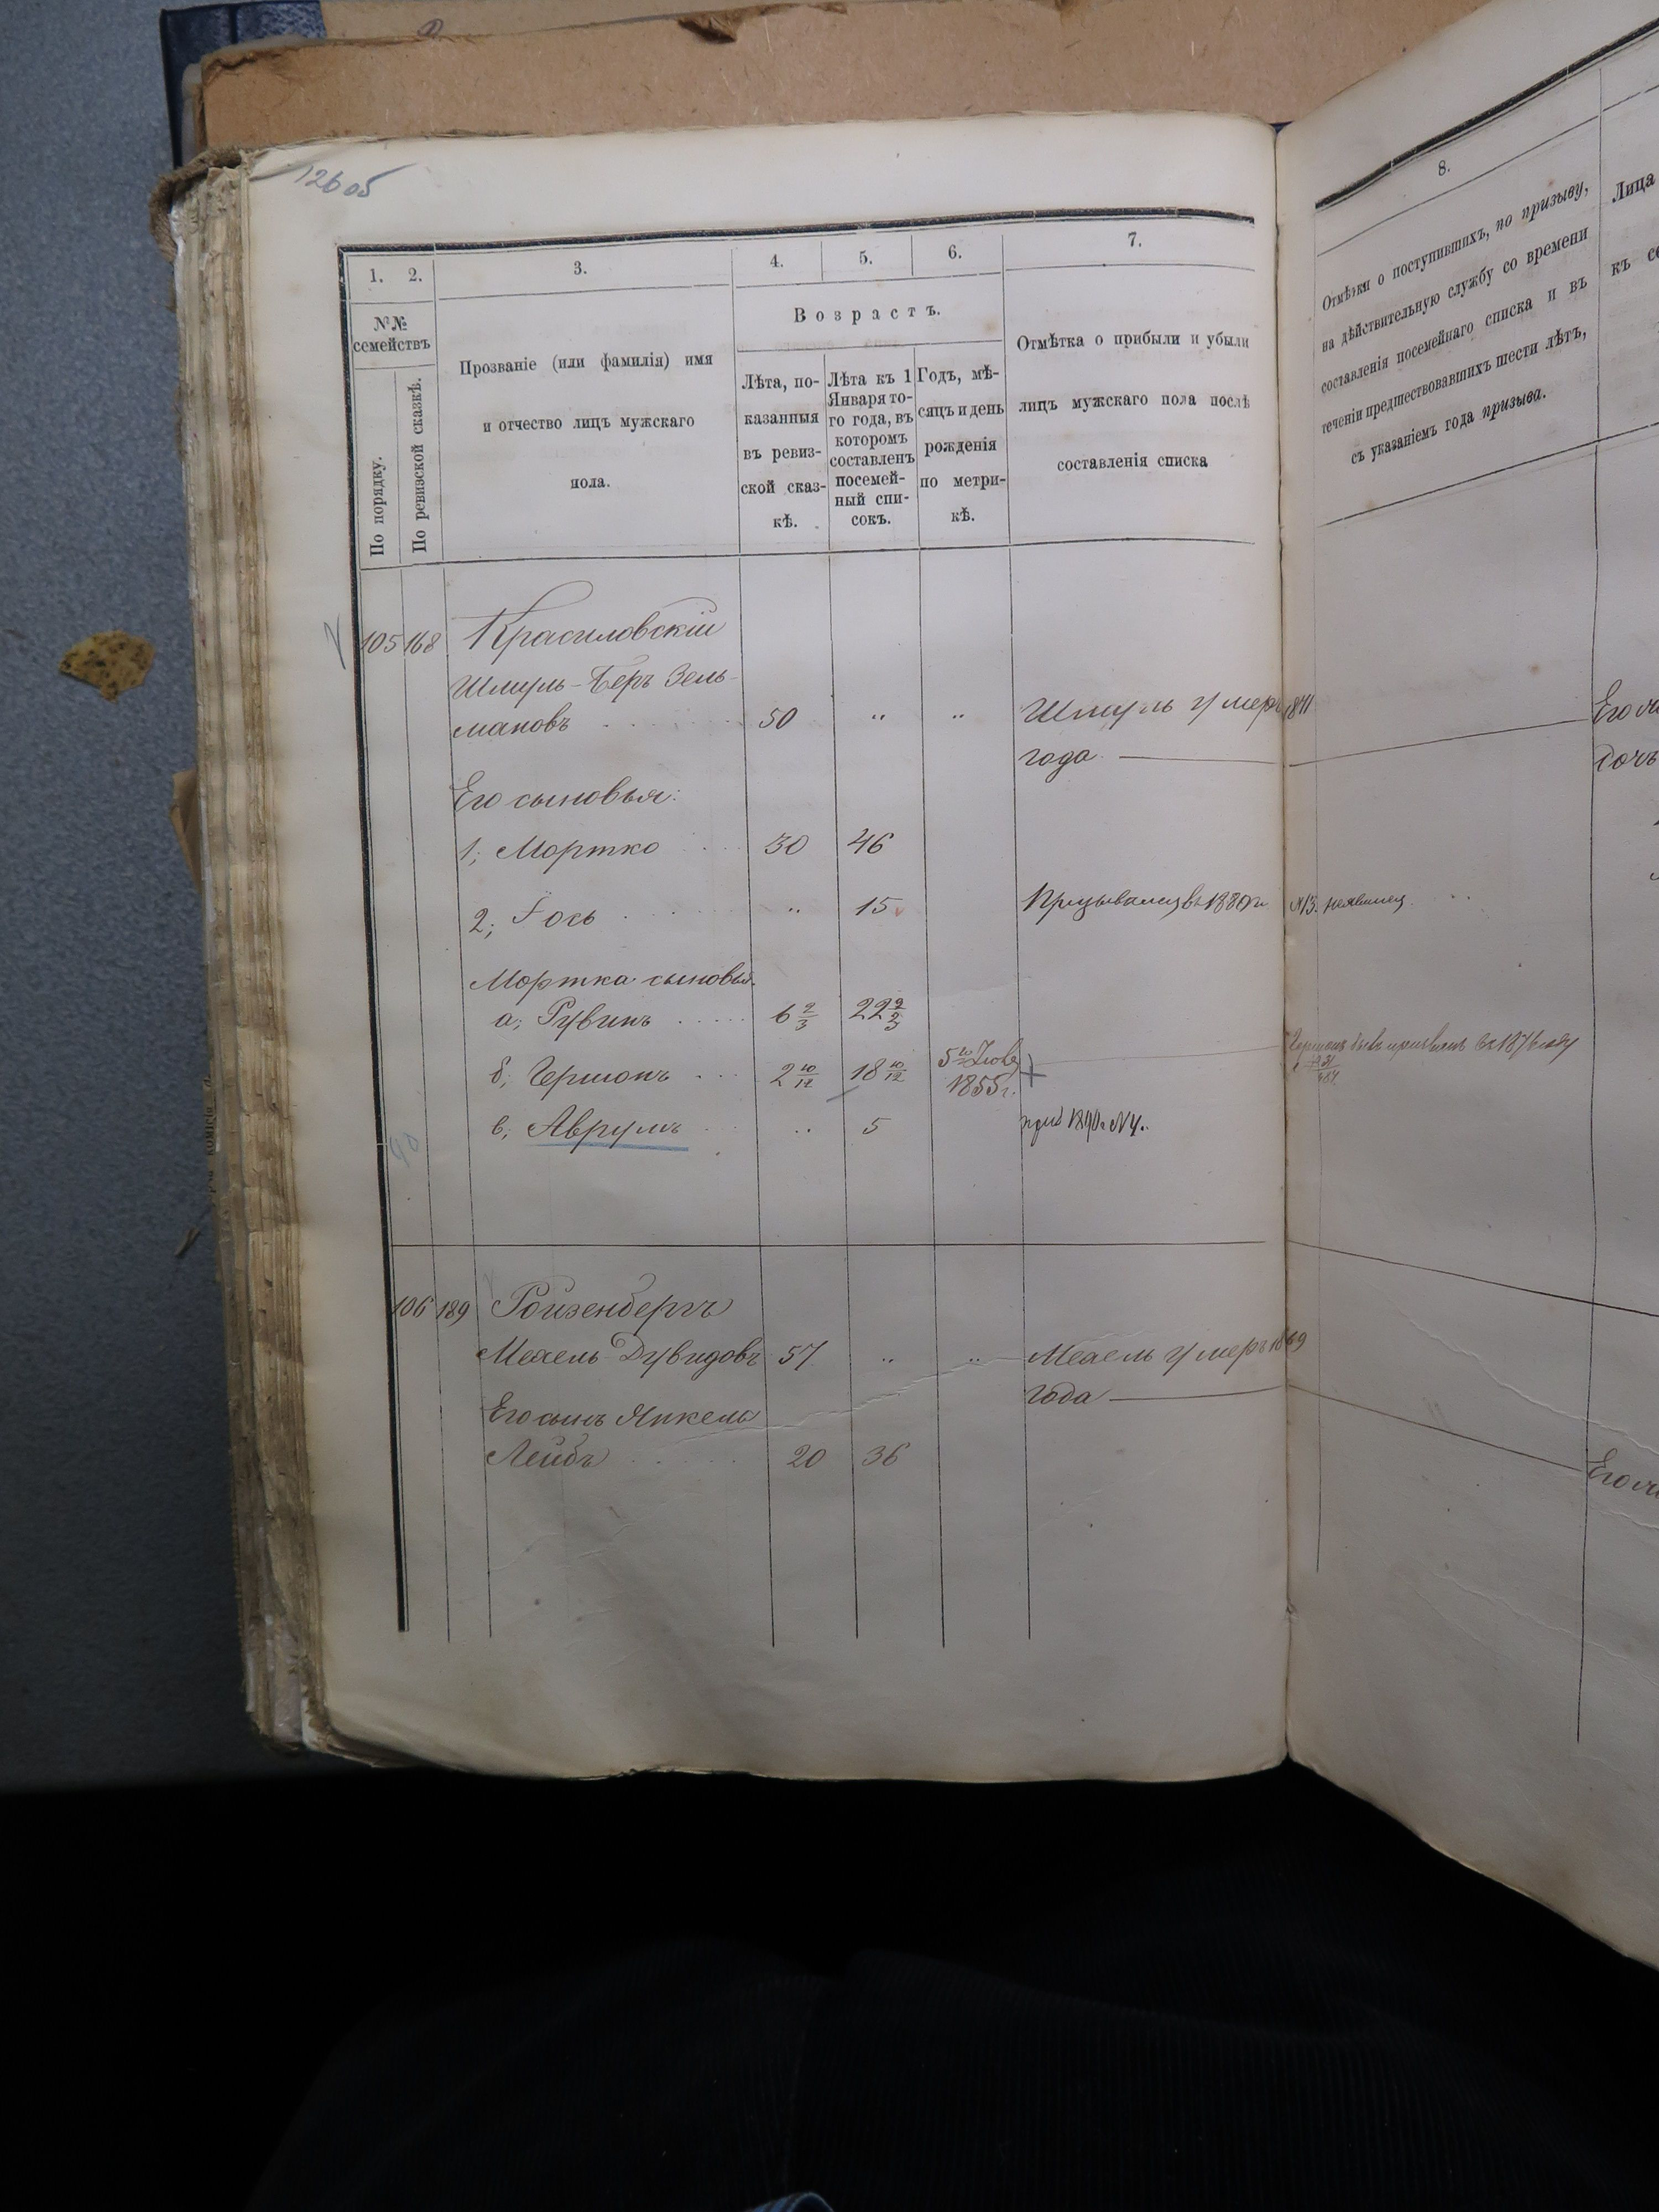 126 об
1. 2. 3. 4. 5. 6. 7.
№№
семействъ
По порядку.
По ревизской сказкѣ.
Прозваніе (или фамилія) имя
и отчество лицъ мужскаго
пола.
Возрастъ.
Лѣта, по-
казанныя
въ ревиз-
ской сказ-
кѣ.
Лѣта къ 1
Января то-
го года, въ
которомъ
составленъ
посемей-
ный спи-
сокъ.
Годъ, мѣ-
сяцъ и день
рожденія
по метри-
кѣ.
Отмѣтка о прибыли и убыли
лицъ мужскаго пола послѣ
составленія списка
8.
Отмѣтки о поступившихъ, по призыву,
на дѣйствительную службу со времени
составленія посемейнаго списка и въ
теченіи предшествовавшихъ шести лѣтъ,
съ указаніемъ года призыва.
Лица
къ се
105 168 Красиловскій
Шмуль-Беръ Зель-
мановъ 50 " " Шмуль умеръ 1871
года
Его
Дочь
Его сыновья:
1; Мортко 30 46
2; Іось " 15 Призывался въ 1880 г. №13.
Мортка сыновья
а; Рувинъ 6 2/3 22 2/3
б; Гершонъ 2 10/12 18 10/12 5го 1855 г. Гершонъ былъ призванъ въ 1876 году
в; Аврумъ " 5 приз 1890 г. №4.
106 189 Ройзенбергъ
Мехель Дувидовъ 57 " " Мехель умеръ 1869
года
Его сынъ Янкель
Лейбъ 20 36
Его